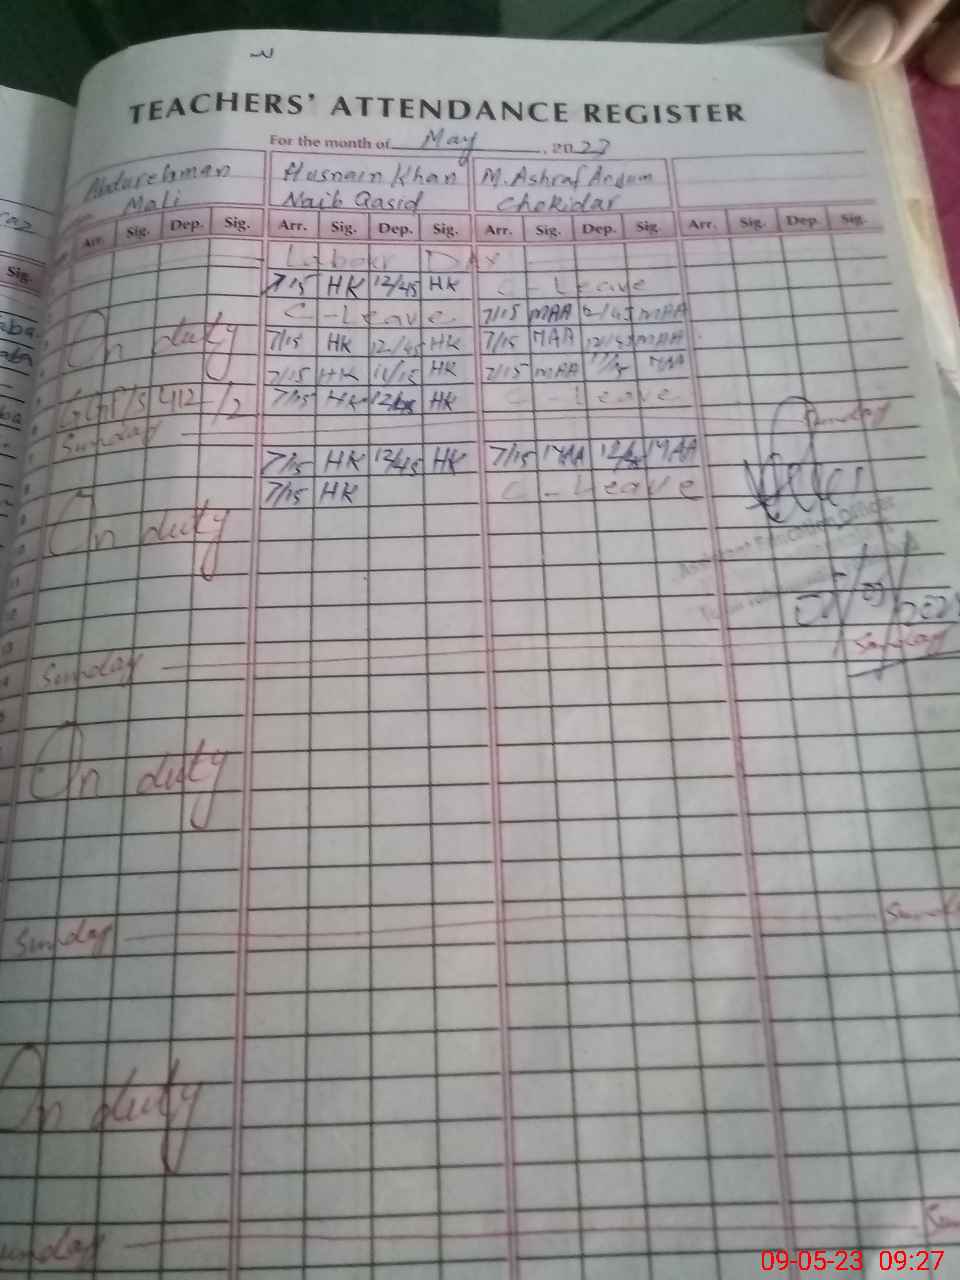 TEACHERS' ATTENDANCE REGISTER
For the month of May, 2023
Abdurehman Husnain Khan M. Ashraf Anjum
Mali Naib Qasid Chokidar
Arr. Sig. Dep. Sig. Arr. Sig. Dep. Sig. Arr. Sig. Dep. Sig. Arr. Sig. Dep. Sig.
Sig.
Labour Day
7/15 HK 12/45 HK C-Leave
C-Leave 7/15 MAA 12/45 MAA
On duty 7/15 HK 12/45 HK 7/15 MAA 12/45 MAA
7/15 HK 11/15 HK 7/15 MAA 11/15 MAA
7/15 HK 12/45 HK C-Leave
Sunday Sunday
7/15 HK 12/45 HK 7/15 MAA 12/45 MAA
7/15 HK C-Leave
On duty
Assistant Education Officer
Sunday Sunday
On duty
Sunday
On duty
09-05-23 09:27